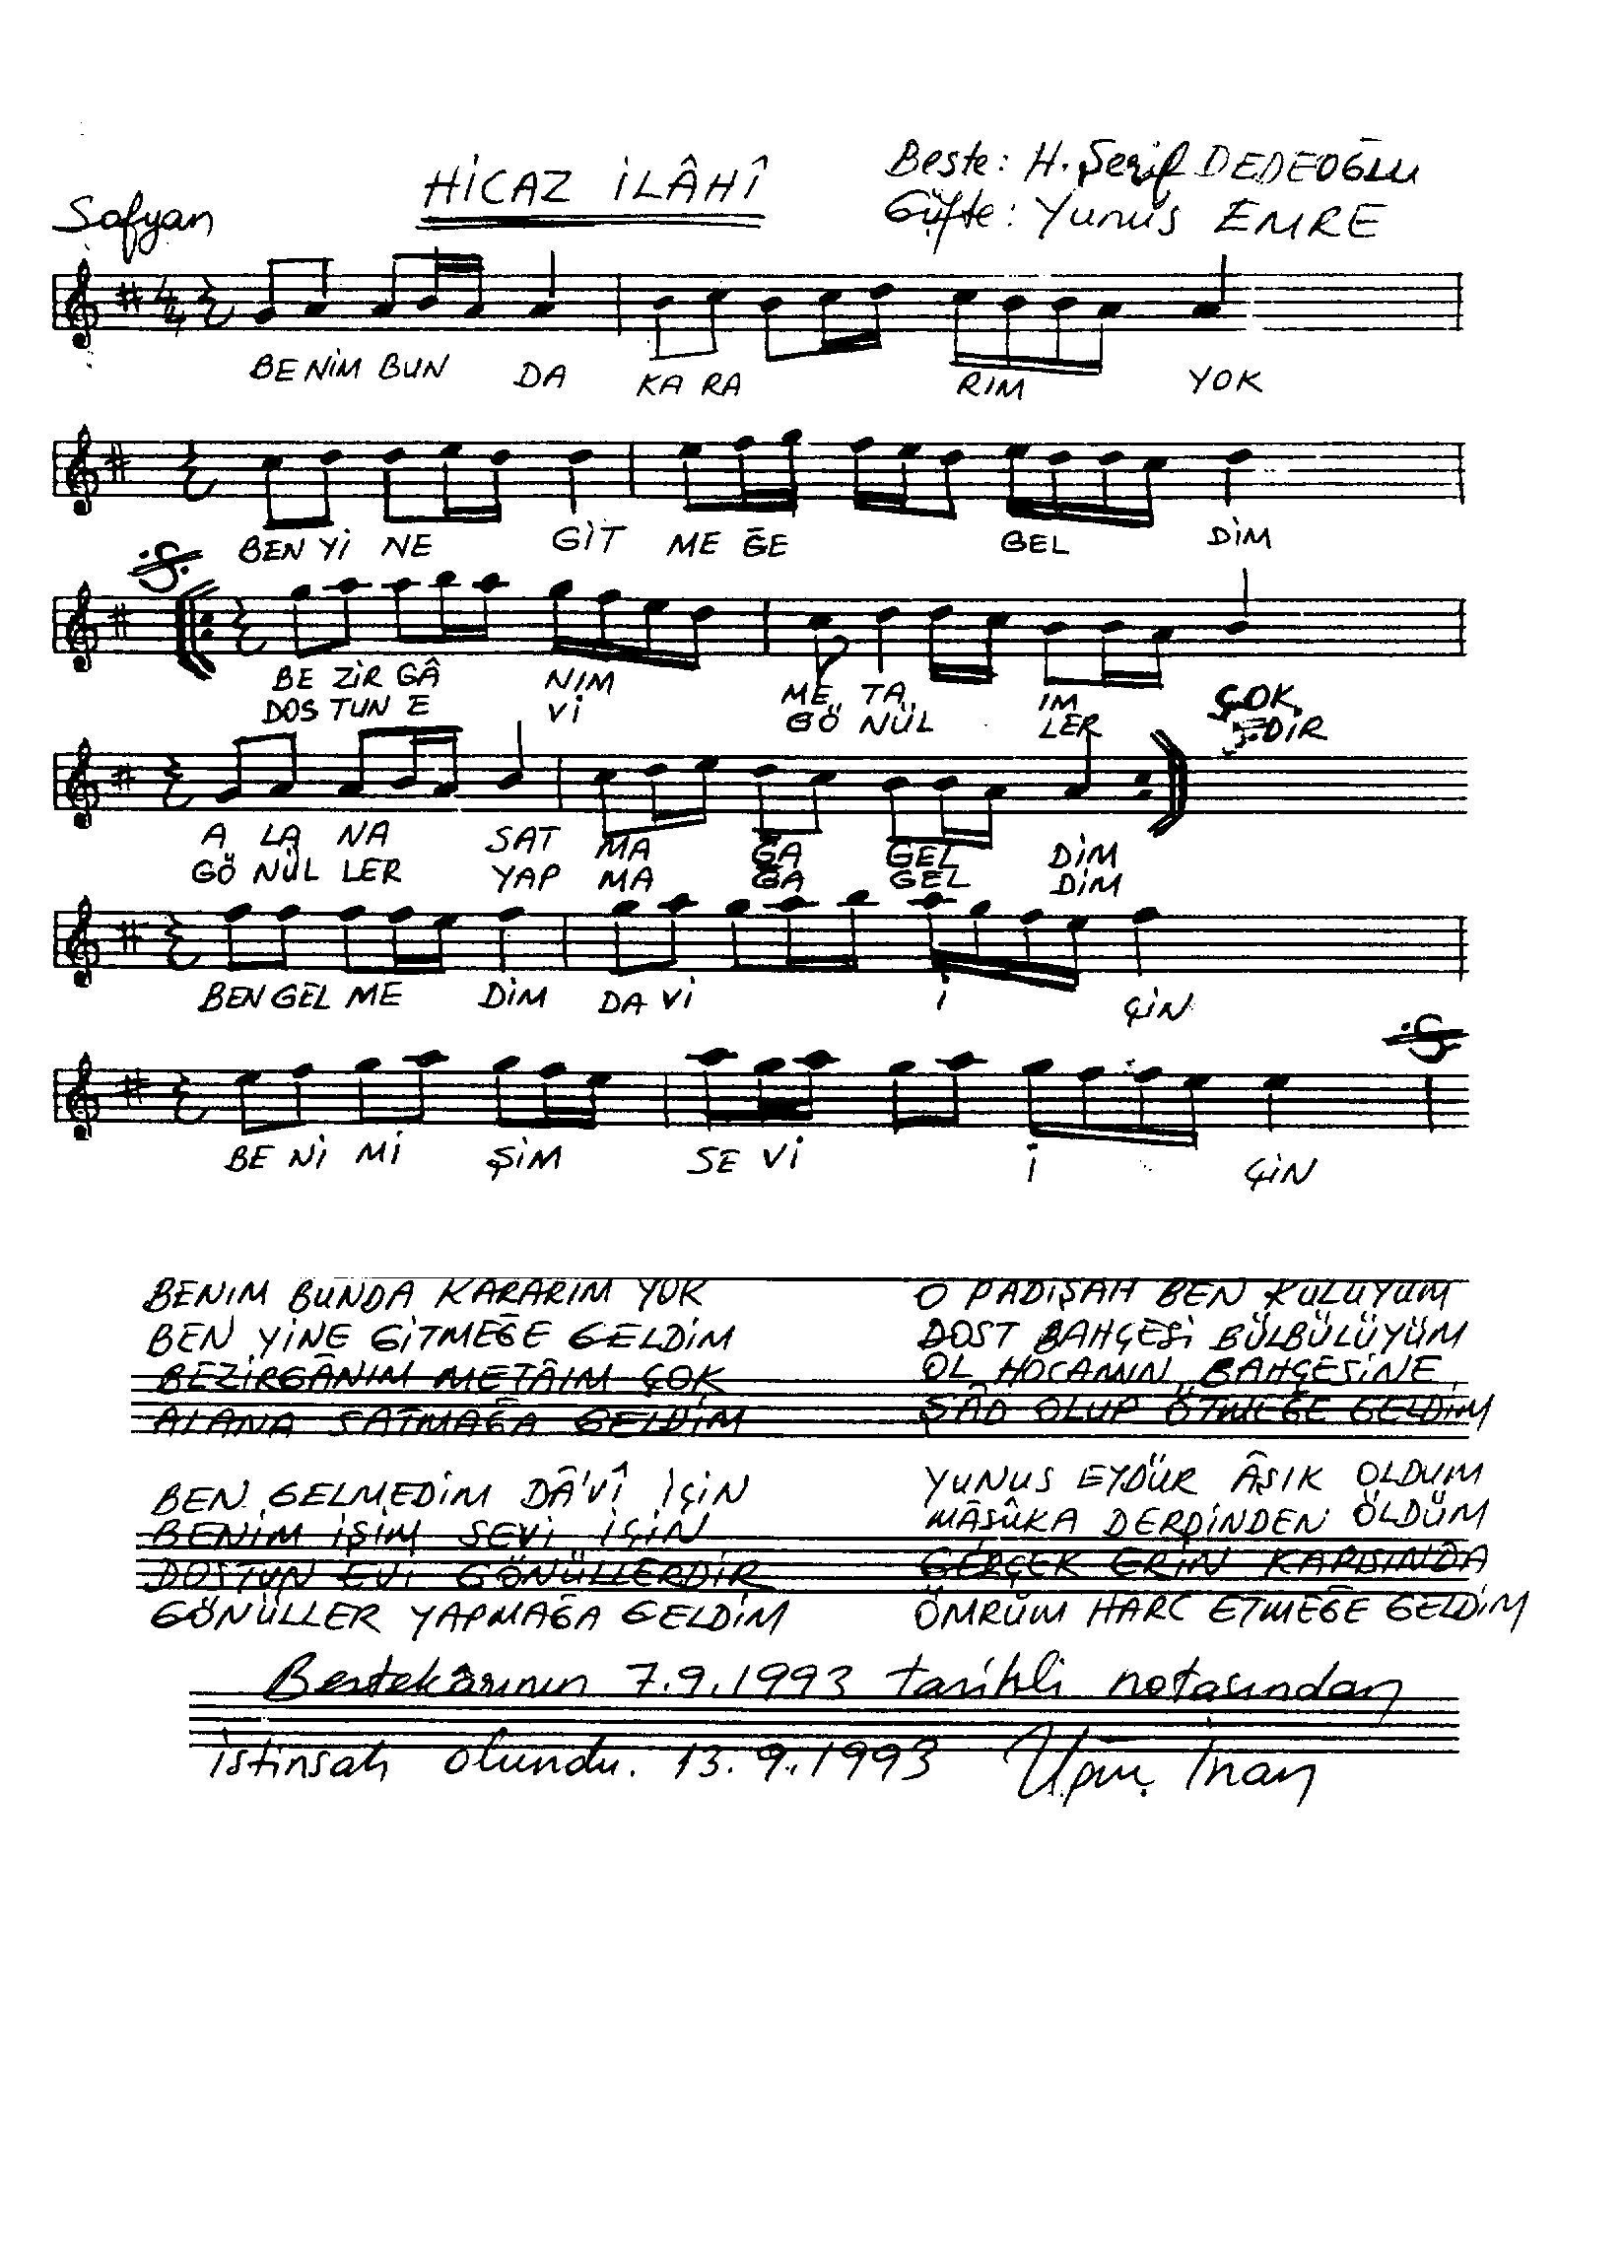 HİCAZ İLÂHÎ
Beste: H. Şerif DEDEOĞLU
Güfte: Yunus EMRE
Sofyan
4/4
BE NİM BUN DA KA RA RIM YOK
BEN Yİ NE GİT ME ĞE GEL DİM
BE ZİR GÂ NIM ME TA IM ÇOK
DOS TUN E Vİ GÖ NÜL LER DİR
A LA NA SAT MA ĞA GEL DİM
GÖ NÜL LER YAP MA ĞA GEL DİM
BEN GEL ME DİM DA Vİ İ ÇİN
BE Nİ Mİ ŞİM SE Vİ İ ÇİN
BENIM BUNDA KARARIM YOK
BEN YİNE GİTMEĞE GELDİM
BEZİRGÂNIM METÂIM ÇOK
ALANA SATMAĞA GELDİM
BEN GELMEDİM DÂ'VÎ İÇİN
BENİM İŞİM SEVİ İÇİN
DOSTUN EVİ GÖNÜLLERDİR
GÖNÜLLER YAPMAĞA GELDİM
O PADİŞAH BEN KULUYUM
DOST BAHÇESİ BÜLBÜLÜYÜM
OL HOCAMIN BAHÇESİNE
ŞÂD OLUP ÖTMEĞE GELDİM
YUNUS EYDÜR ÂŞIK OLDUM
MÂŞÛKA DERDİNDEN ÖLDÜM
GERÇEK ERİN KAPISINDA
ÖMRÜM HARC ETMEĞE GELDİM
Bestekârının 7.9.1993 tarihli notasından
istinsah olundu. 13.9.1993 İnan